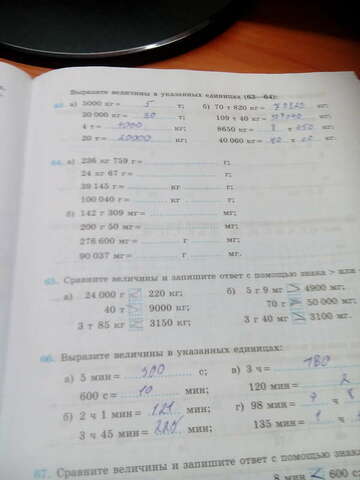 Выразите величины в указанных единицах (63—64):
63. а) 5000 кг = 5 т; б) 70 т 820 кг = 70820 кг;
30 000 кг = 30 т; 109 т 40 кг = кг;
4 т = 4000 кг; 8650 кг = 8 т 650 кг;
20 т = 20000 кг; 40 060 кг = 40 т кг.
64. а) 236 кг 759 г = г;
24 кг 67 г = г;
39 145 г = кг г;
100 040 г = кг г;
б) 142 г 309 мг = мг;
200 г 50 мг = мг;
276 600 мг = г мг;
90 037 мг = г мг.
65. Сравните величины и запишите ответ с помощью знака > или
а) 24 000 г 220 кг; б) 5 г 9 мг > 4900 мг;
40 т 9000 кг; 70 г 50 000 мг;
3 т 85 кг 3150 кг; 3 г 40 мг 3100 мг.
66. Выразите величины в указанных единицах:
а) 5 мин = 300 с; в) 3 ч = 180
600 с = 10 мин; 120 мин = 2
б) 2 ч 1 мин = 121 мин; г) 98 мин = ч
3 ч 45 мин = мин; 135 мин = 1 ч
67. Сравните величины и запишите ответ с помощью знака
8 мин < 600 с